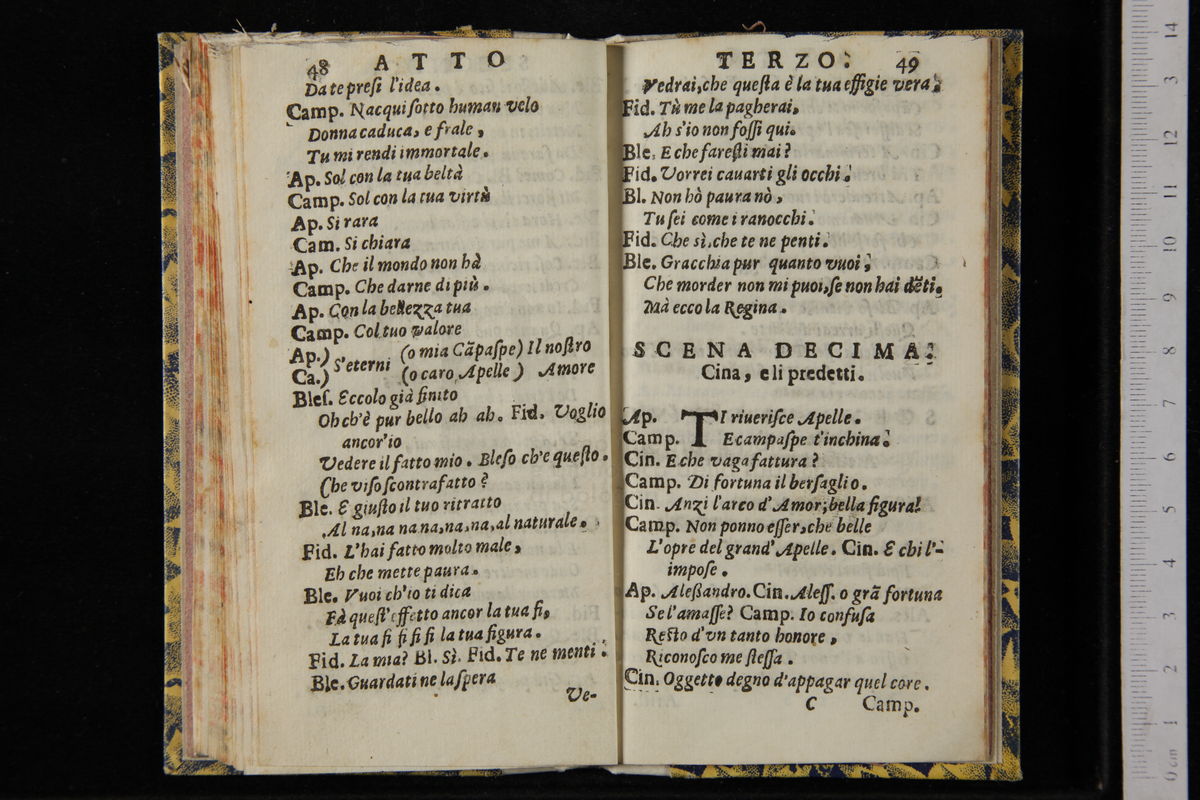 48 ATTO
Da te presi l'idea.
Camp. Nacqui sotto human velo
Donna caduca, e frale,
Tu mi rendi immortale.
Ap. Sol con la tua beltà
Camp. Sol con la tua virtù
Ap. Si rara
Cam. Si chiara
Ap. Che il mondo non hà
Camp. Che darne di più.
Ap. Con la bellezza tua
Camp. Col tuo valore
Ap.) S'eterni (o mia Cãpaspe) Il nostro
Ca.) (o caro Apelle) Amore
Bles. Eccolo già finito
Oh ch'è pur bello ah ah. Fid. Voglio
ancor'io
Vedere il fatto mio. Bleso ch'e questo.
Che viso scontrafatto?
Ble. E giusto il tuo ritratto
Al na, na na na, na, na, al naturale.
Fid. L'hai fatto molto male,
Eh che mette paura.
Ble. Vuoi ch'io ti dica
Fà quest'effetto ancor la tua fi,
La tua fi fi fi fi la tua figura.
Fid. La mia? Bl. Sì. Fid. Te ne menti.
Ble. Guardati ne la spera
Ve-
TERZO. 49
Vedrai, che questa è la tua effigie vera.
Fid. Tù me la pagherai,
Ah s'io non fossi qui.
Ble. E che faresti mai?
Fid. Vorrei cauarti gli occhi.
Bl. Non hò paura nò,
Tu sei come i ranocchi.
Fid. Che sì, che te ne penti.
Ble. Gracchia pur quanto vuoi,
Che morder non mi puoi, se non hai dẽti.
Mà ecco la Regina.
SCENA DECIMA.
Cina, e li predetti.
Ap. TI riuerisce Apelle.
Camp. E campaspe t'inchina.
Cin. E che vaga fattura?
Camp. Di fortuna il bersaglio.
Cin. Anzi l'arco d'Amor; bella figura!
Camp. Non ponno esser, che belle
L'opre del grand'Apelle. Cin. E chi l'-
impose.
Ap. Aleßandro. Cin. Aless. o grã fortuna
Se l'amasse? Camp. Io confusa
Resto d'vn tanto honore,
Riconosco me stessa.
Cin. Oggetto degno d'appagar quel core.
C Camp.
14
13
12
11
10
9
8
7
6
5
4
3
2
1
0 cm